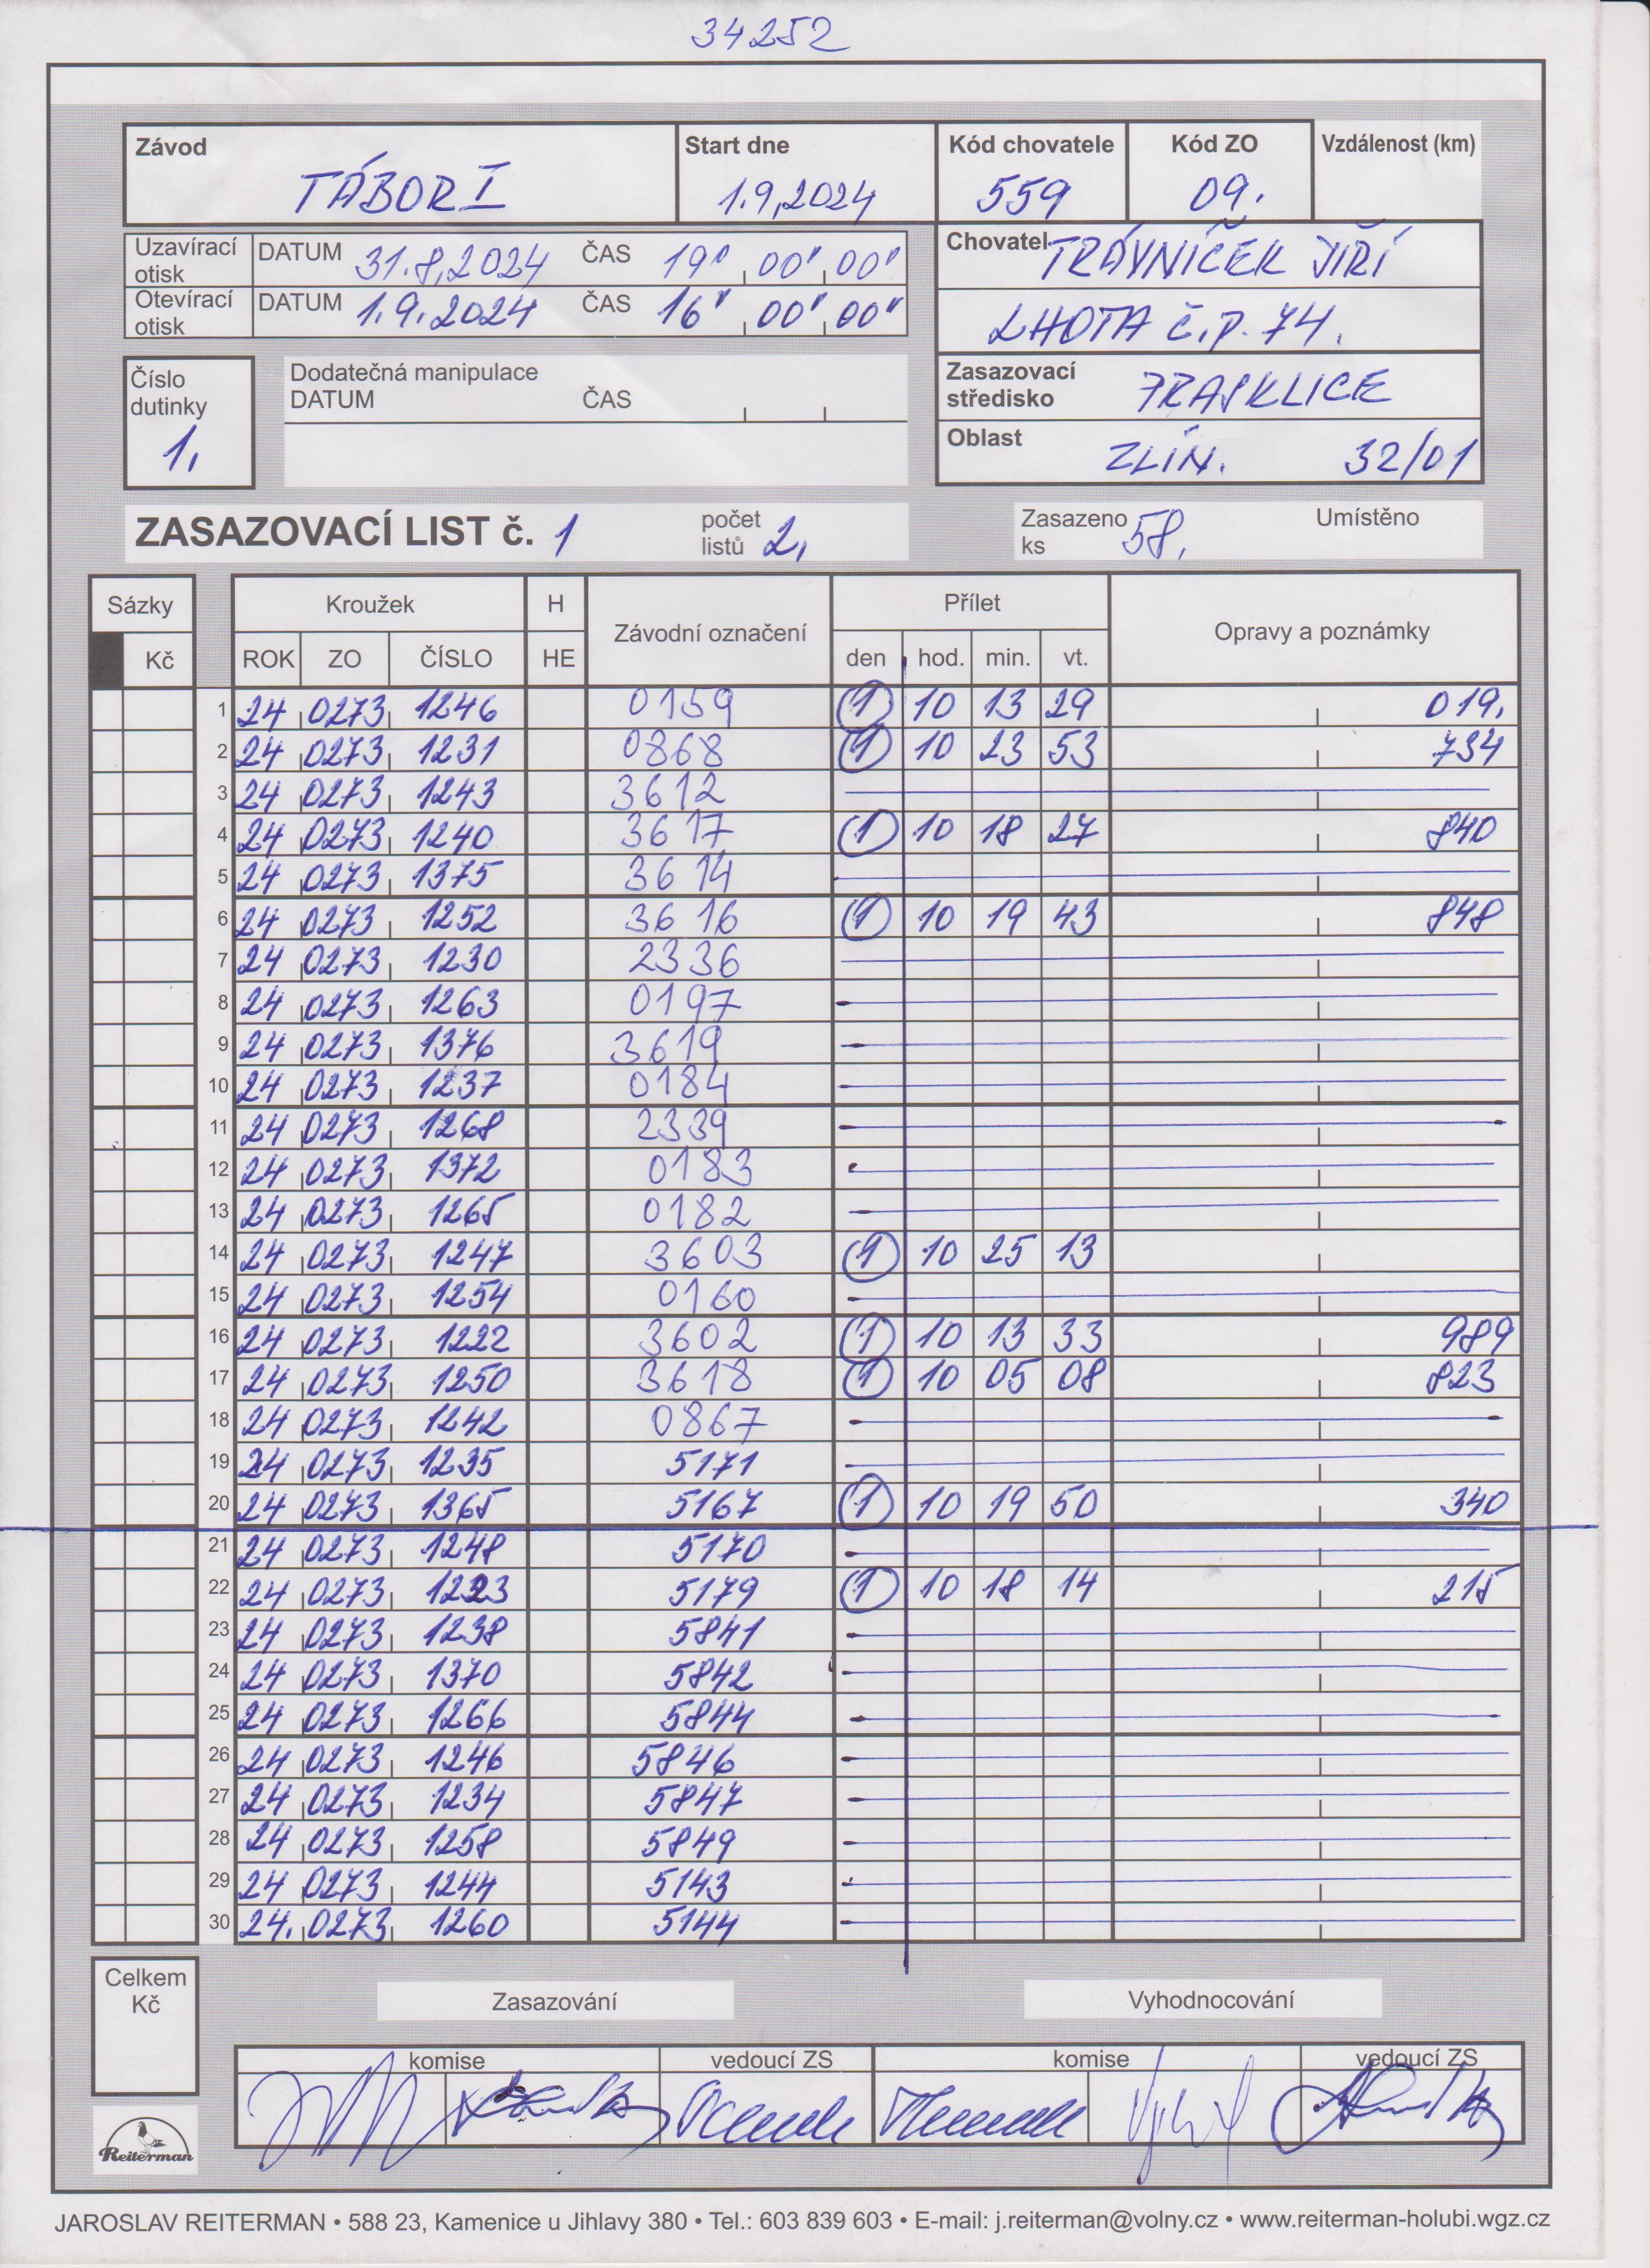 34252
Závod Start dne Kód chovatele Kód ZO Vzdálenost (km)
TÁBOR I 1.9.2024 559 09.
Uzavírací otisk DATUM 31.8.2024 ČAS 19" 00" 00"
Otevírací otisk DATUM 1.9.2024 ČAS 16" 00" 00"
Chovatel TRÁVNÍČEK JIŘÍ
LHOTA č.p. 74.
Číslo dutinky 1,
Dodatečná manipulace
DATUM ČAS
Zasazovací středisko
Oblast ZLÍN. 32/01
ZASAZOVACÍ LIST č. 1 počet listů 2, Zasazeno ks 58, Umístěno
Sázky Kroužek H Závodní označení Přílet Opravy a poznámky
Kč ROK ZO ČÍSLO HE den hod. min. vt.
1 24 0273 1246 0159 1 10 13 29 019.
2 24 0273 1231 0868 1 10 23 53 734
3 24 0273 1243 3612
4 24 0273 1240 3617 1 10 18 27 840
5 24 0273 1375 3614
6 24 0273 1252 3616 1 10 19 43 848
7 24 0273 1230 2336
8 24 0273 1263 0197
9 24 0273 1376 3619
10 24 0273 1237 0184
11 24 0273 1268 2339
12 24 0273 1372 0183
13 24 0273 1265 0182
14 24 0273 1247 3603 1 10 25 13
15 24 0273 1254 0160
16 24 0273 1222 3602 1 10 13 33 989
17 24 0273 1250 3618 1 10 05 08 823
18 24 0273 1242 0867
19 24 0273 1235 5171
20 24 0273 1365 5167 1 10 19 50 340
21 24 0273 1248 5170
22 24 0273 1223 5179 1 10 18 14 215
23 24 0273 1238 5841
24 24 0273 1370 5842
25 24 0273 1266 5844
26 24 0273 1246 5846
27 24 0273 1234 5847
28 24 0273 1258 5849
29 24 0273 1244 5143
30 24. 0273 1260 5144
Celkem Kč
Zasazování Vyhodnocování
komise vedoucí ZS komise vedoucí ZS
Reiterman
JAROSLAV REITERMAN • 588 23, Kamenice u Jihlavy 380 • Tel.: 603 839 603 • E-mail: j.reiterman@volny.cz • www.reiterman-holubi.wgz.cz